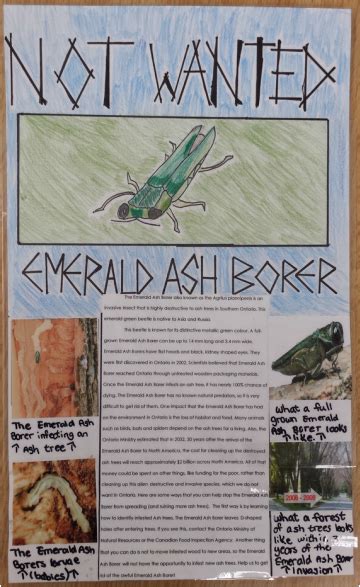 NOT WANTED
EMERALD ASH BORER
The Emerald Ash Borer also known as the Agrilus planipennis is an
invasive insect that is highly destructive to ash trees in Southern Ontario. This
emerald green beetle is native to Asia and Russia.
This beetle is known for its distinctive metallic green colour. A full
grown Emerald Ash Borer can be up to 14 mm long and 3.4 mm wide.
Emerald Ash Borers have flat heads and black, kidney shaped eyes. They
were first discovered in Ontario in 2002. Scientists believed that Emerald Ash
Borer reached Ontario through untreated wooden packaging materials.
Once the Emerald Ash Borer infests an ash tree, it has nearly 100% chance of
dying. The Emerald Ash Borer has no known natural predators, so it is very
difficult to get rid of them. One impact that the Emerald Ash Borer has had
on the environment in Ontario is the loss of habitat and food. Many animals
such as birds, bats and spiders depend on the ash trees for a living. Also, the
Ontario Ministry estimated that in 2032, 30 years after the arrival of the
Emerald Ash Borer to North America, the cost for cleaning up the destroyed
ash trees will reach approximately $2 billion across North America. All of that
money could be spent on other things, like funding for the poor, rather than
cleaning up this alien, destructive and invasive species, which we do not
want in Ontario. Here are some ways that you can help stop the Emerald Ash
Borer from spreading (and ruining more ash trees). The first way is by learning
how to identify infested Ash trees. The Emerald Ash Borer leaves D-shaped
holes after entering trees. If you see this, contact the Ontario Ministry of
Natural Resources or the Canadian Food Inspection Agency. Another thing
that you can do is not to move infested wood to new areas, so the Emerald
Ash Borer will not have the opportunity to infest new ash trees. Help us to get
rid of the awful Emerald Ash Borer!
The Emerald Ash
Borer infecting an
↑ Ash tree ↑
The Emerald Ash
Borers larvae
↑ (babies) ↑
What a full
grown Emerald
Ash Borer looks
↑ like. ↑
2006 - 2009
What a forest
of ash trees looks
like within
years of the
Emerald Ash Borer
↑ invasion ↑